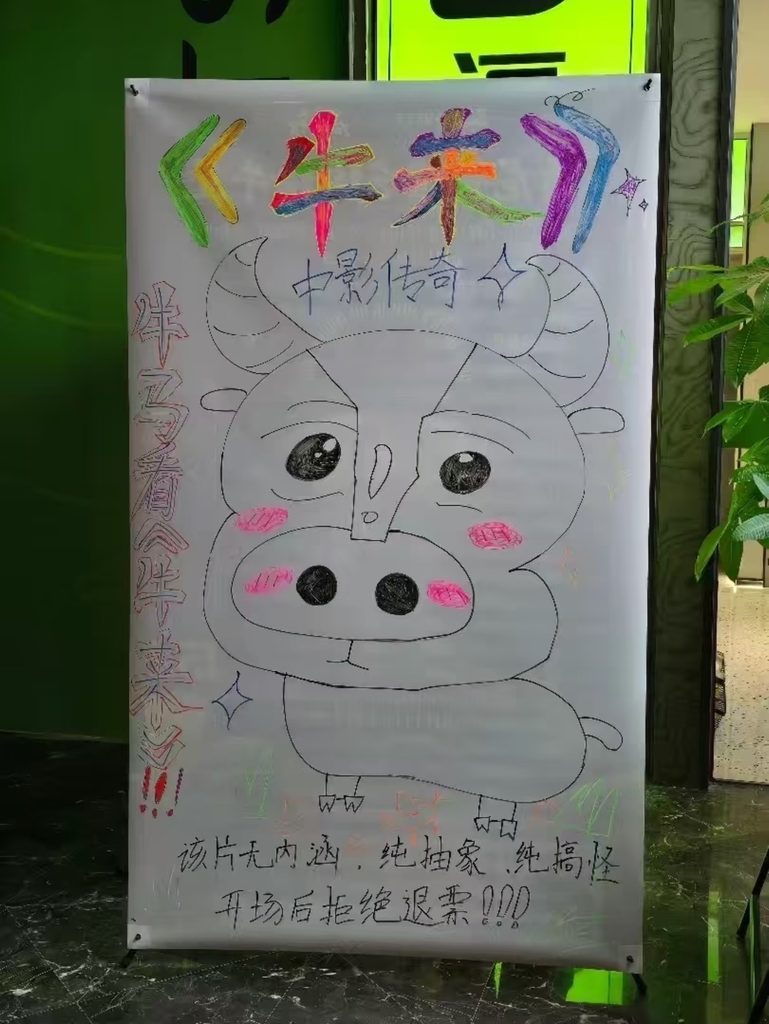 《牛来》
中影传奇
牛马看《牛来》!!!
该片无内涵．纯抽象．纯搞怪
开场后拒绝退票!!!